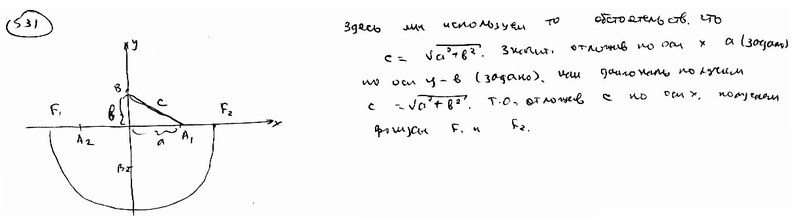 531
y
B
c
F₁
в
F₂
x
A₂
a
A₁
B₂
Здесь мы используем то обстоятельств. что
c = √a²+в². Значит, отложив по оси x a (задано)
по оси y – в (задано), диагональ получим
c = √a²+в². Т.О. отложив c по оси x, получаем
фокусы F₁ и F₂.